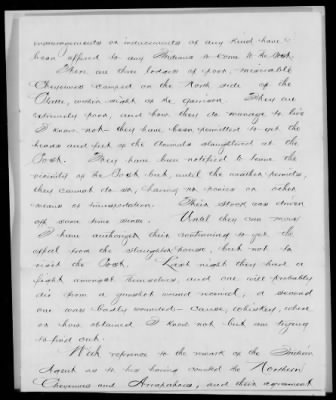 encouragements or inducements of any kind have
been offered to any Indians to come to the Post.
There are three lodges of poor, miserable
Cheyennes camped on the North side of the
Platte, within sight of the garrison. They are
extremely poor, and how they do manage to live
I know not they have been permitted to get the
heads and feet of the animals slaughtered at the
Post. They have been notified to leave the
vicinity of the Post but, until the weather permits,
they cannot do so, having no ponies or other
means of transportation. Their stock was driven
off some time since. Until they can move
I have authorized their continuing to get the
offal from the slaughter house, but not to
visit the Post. Last night they had a
fight amongst themselves, and one will probably
die from a gunshot wound received, a second
one was badly wounded - cause, whiskey, where
or how obtained I know not but am trying
to find out.
With reference to the remark of the Indian
Agent as to his having counted the Northern
Cheyennes and Arrapahoes, and their agreement